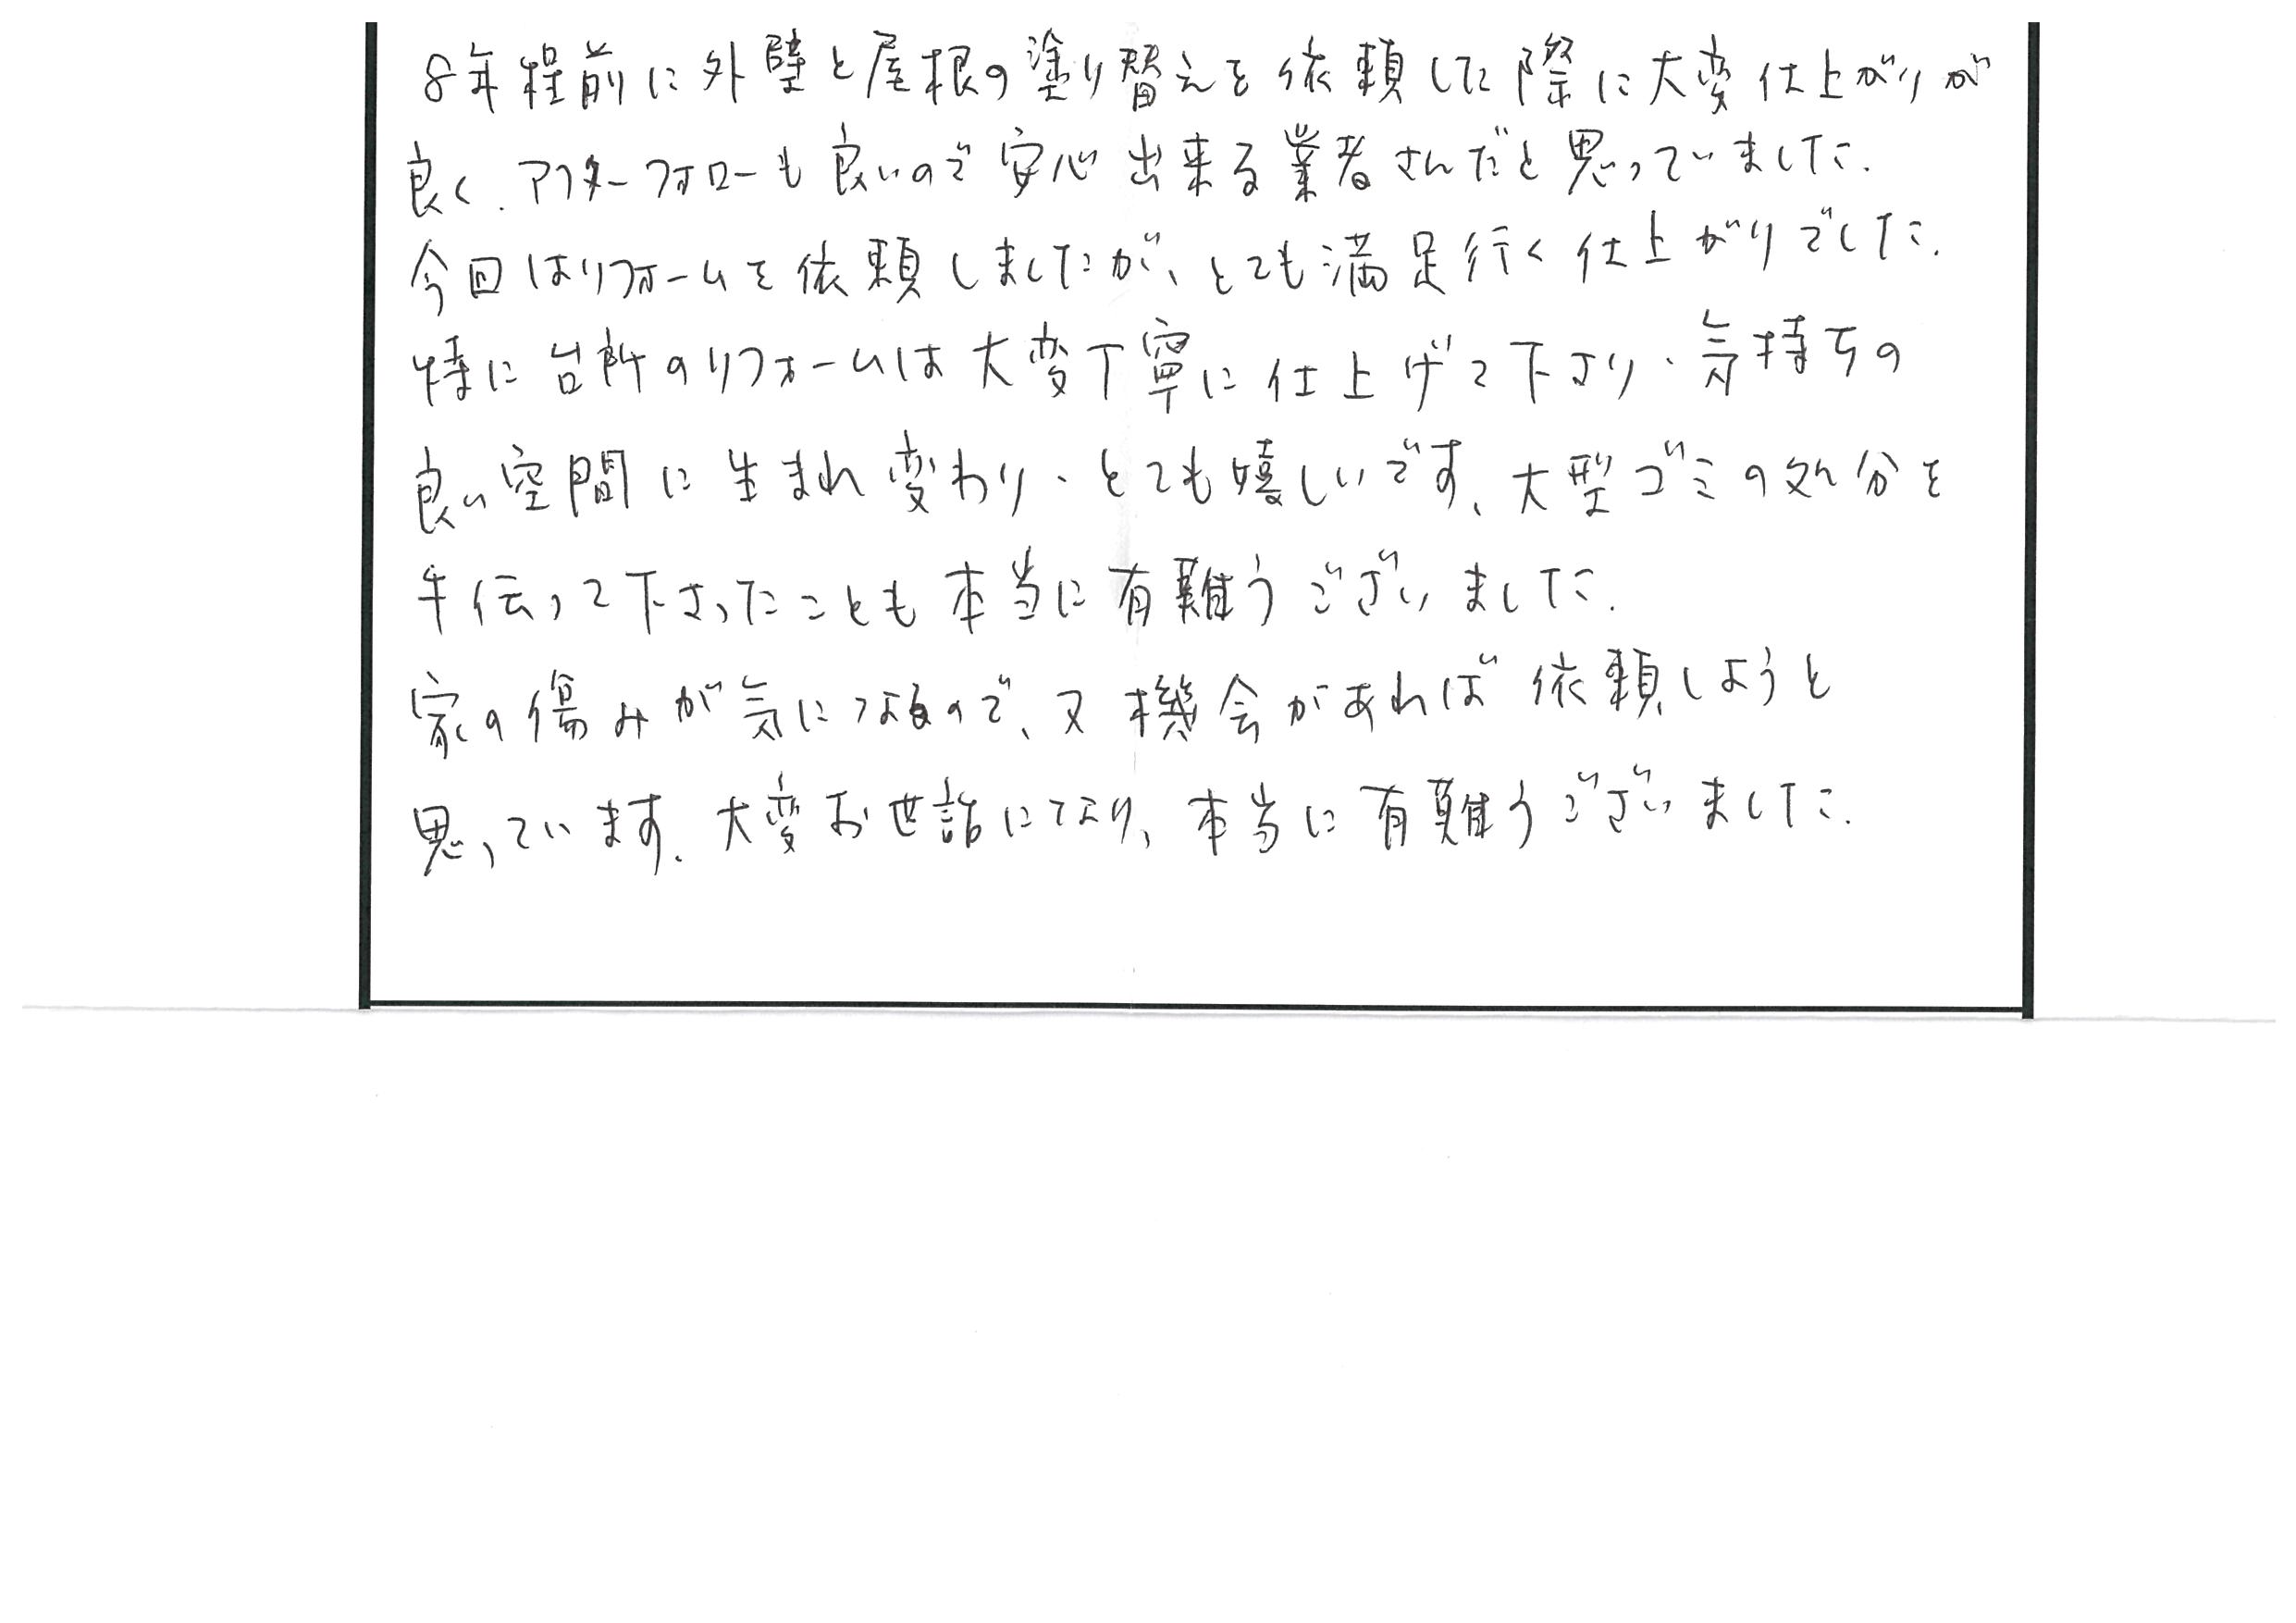 8年程前に外壁と屋根の塗り替えを依頼した際に大変仕上がりが
良く、アフターフォローも良いので安心出来る業者さんだと思っていました。
今回はリフォームを依頼しましたが、とても満足行く仕上がりでした。
特に台所のリフォームは大変丁寧に仕上げて下さり、気持ちの
良い空間に生まれ変わり、とても嬉しいです。大型ゴミの処分を
手伝って下さったことも本当に有難うございました。
家の傷みが気になるので、又機会があれば依頼しようと
思っています。大変お世話になり、本当に有難うございました。